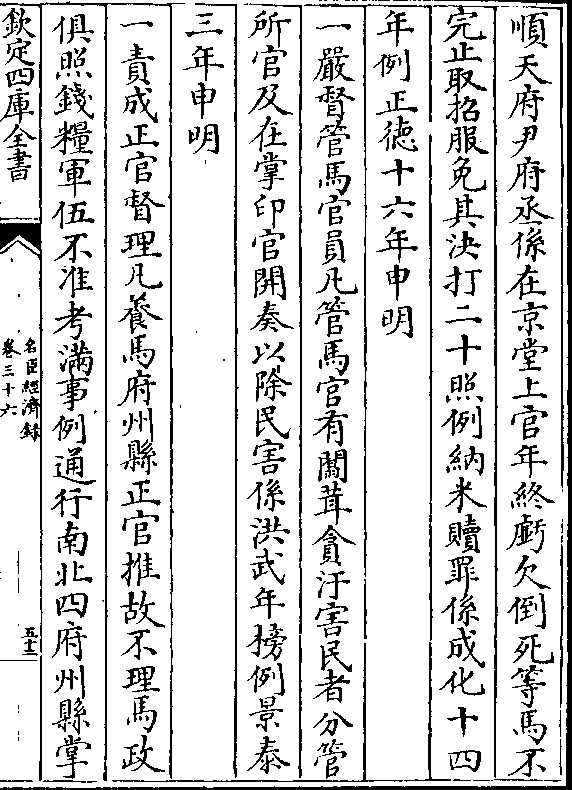 順天府尹府丞係在京堂上官年終虧欠倒死等馬不
完止取招服免其決打二十照例納米贖罪係成化十四
年例正徳十六年申明
一嚴督管馬官員凡管馬官有闒茸貪汙害民者分管
所官及在掌印官開奏以除民害係洪武年榜例景泰
三年申明
一責成正官督理凡養馬府州縣正官推故不理馬政
俱照錢糧軍伍不准考滿事例通行南北四府州縣掌
欽定四庫全書
名臣經濟錄
卷三十六
五十三